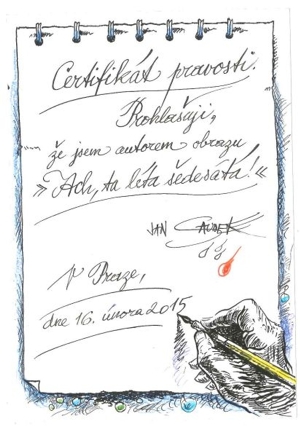 Certifikát pravosti.
Prohlašuji,
že jsem autorem obrazu
»Ach, ta léta šedesátá!«
JAN SAUDEK
V Praze,
dne 16. února 2015